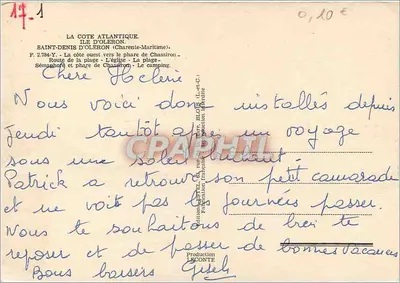 17.1
0,10 €
LA COTE ATLANTIQUE.
ILE D'OLERON.
SAINT-DENIS D'OLERON (Charente-Maritime).
P. 2.784-Y. - La côte ouest vers le phare de Chassiron -
Route de la plage - L'église - La plage -
Sémaphore et phare de Chassiron - Le camping.
Chère Hélène
Nous voici donc installés depuis
Jeudi tantôt après un voyage
sous une soleil
CPARAMA
Patrick a retrouvé son petit camarade
et ne voit pas les journées passer.
Nous te souhaitons de bien te
reposer et de passer de bonnes vacances
Bons baisers
Production
LECONTE